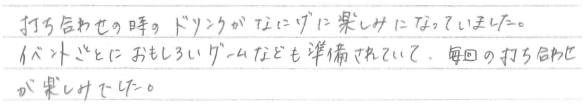 打ち合わせの時のドリンクがなにげに楽しみになっていました。
イベントごとにおもしろいゲームなども準備されていて、毎回の打ち合わせ
が楽しみでした。